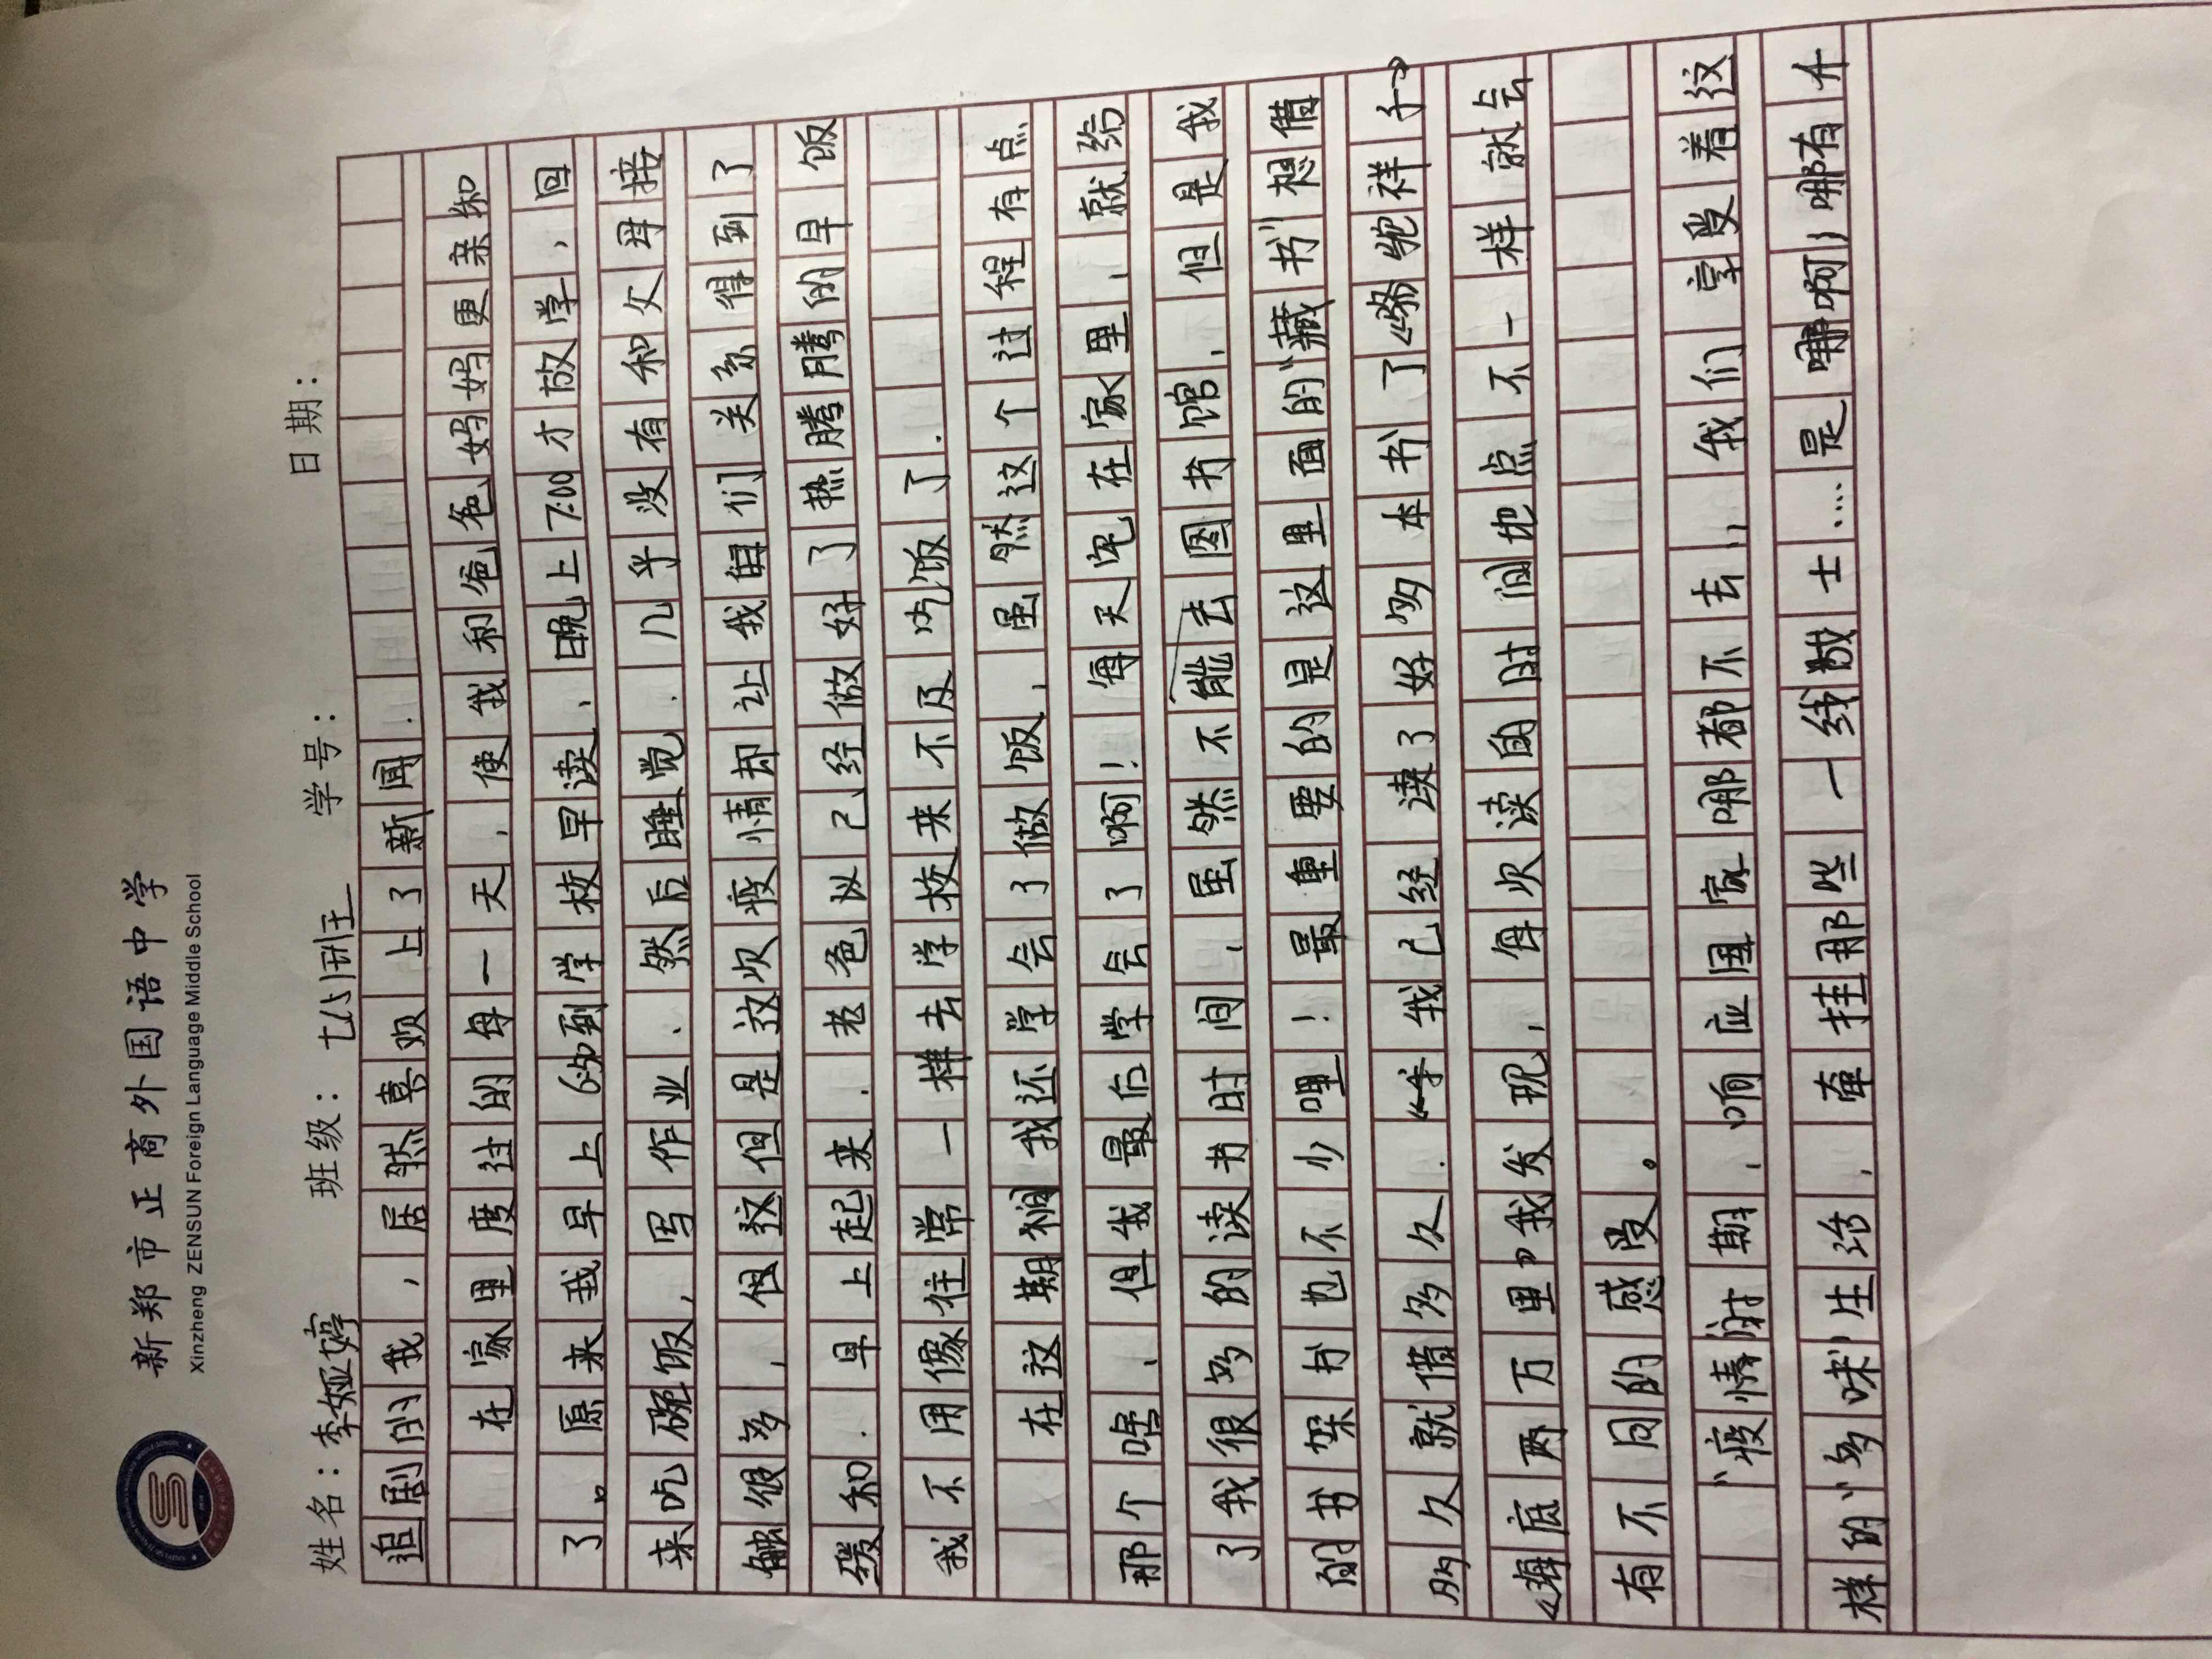 新郑市正商外国语中学
Xinzheng ZENSUN Foreign Language Middle School
姓名：李娅婷 班级：七八班 学号： 日期：
追剧的我，居然喜欢上了新闻．
在家里度过的每一天，使我和爸爸妈妈更亲和
了。原来我早上6:50到学校早读，晚上7:00才放学，回
来吃碗饭，写作业．然后睡觉．几乎没有和父母接
触很多，但这次疫情却让我们关系得到了
缓和．早上起来．老爸以己经做好了热腾腾的早饭
我不用像往常一样去学校来不及吃饭了．
在这期间我还学会了做饭，虽然这个过程有点
那个啥，但我最后学会了啊！每天宅在家里，就给
了我很多的读书时间，虽然不能去图书馆，但是我
的书架书也不少哩！最重要的是这里面的“藏书”想借
多久就借多久．我己经读了好多本书了《骆驼祥子》
《海底两万里》我发现，每次读的时间地点不一样就会
有不同的感受。
“疫情”时期，响应国家哪都不去，我们享受着这
样的“多味”生活，牵挂那些一线战士…是啊，哪有什